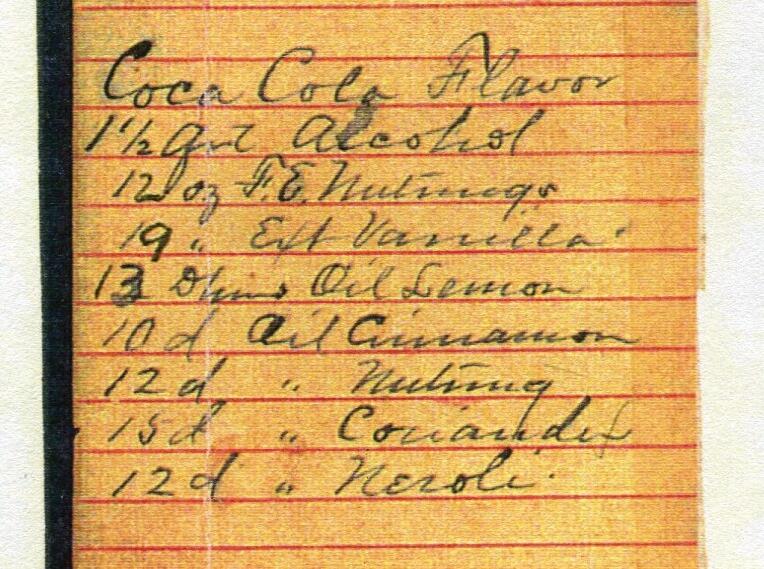 Coca Cola Flavor
1 1/2 Qrt Alcohol
12 oz F.E. Nutmegs
19 " Ext Vanilla
13 Dhms Oil Lemon
10 d Oil Cinnamon
12 d " Nutmeg
15 d " Coriander
12 d " Neroli